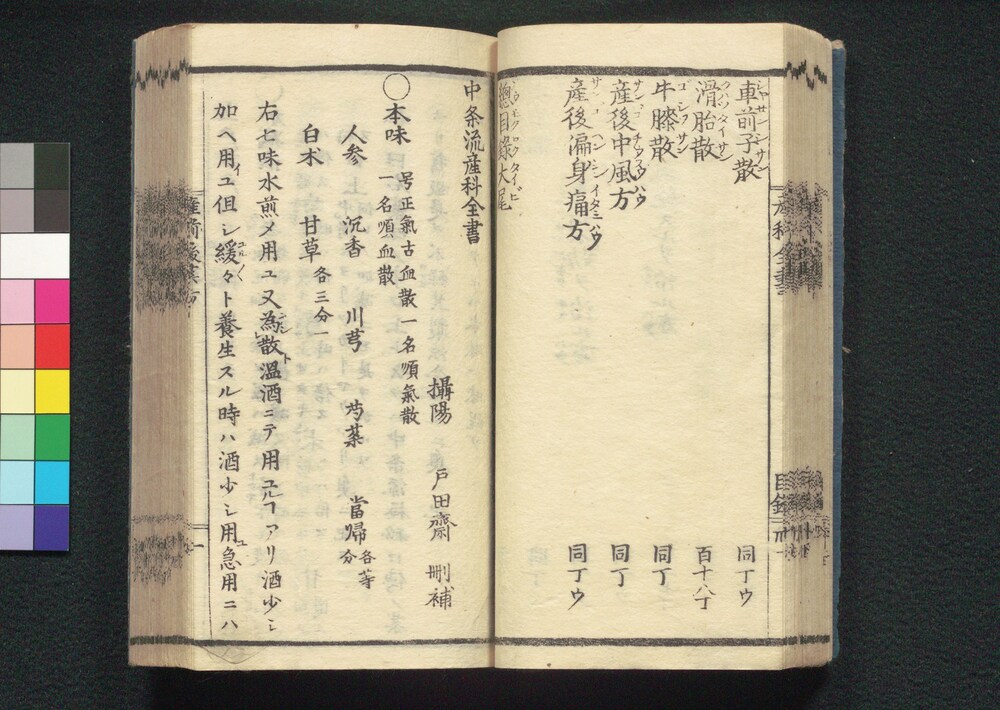 車前子散 同丁ウ
滑胎散 百十八丁
牛膝散 同丁
産後中風方 同丁
産後遍身痛方 同丁ウ
總目録大尾
産科全書
目録
中条流産科全書
攝陽 戸田齋 刪補
〇本味 号正氣古血散一名順氣散
一名順血散
人参 沉香 川芎 芍薬 當帰 各等分
白朮 甘草 各三分一
右七味水煎メ用ユ又為散温酒ニテ用ユルヿアリ酒少シ
加ヘ用ユ但シ緩々ト養生スル時ハ酒少シ用急用ニハ